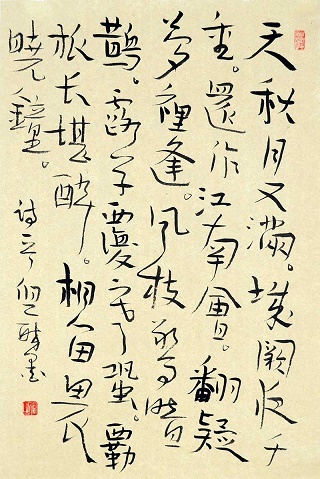 天秋月又滿。城闕夜千
重。還作江南會。翻疑
夢裡逢。风枝驚暗
鵲。露草覆寒蛩。覊
旅长堪醉。相留畏
曉鐘。诗 墨